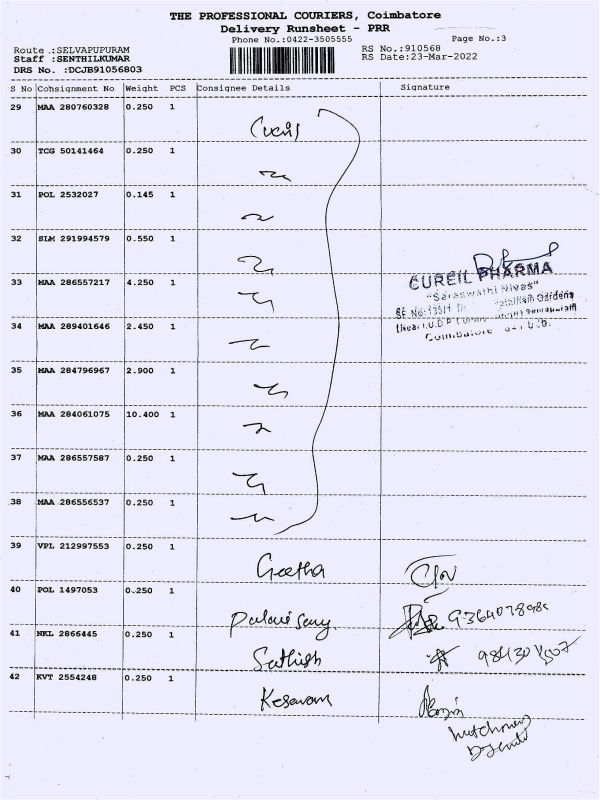 THE PROFESSIONAL COURIERS, Coimbatore
Delivery Runsheet - PRR
Phone No.:0422-3505555 Page No.:3
Route .:SELVAPUPURAM RS No.:910568
Staff :SENTHILKUMAR RS Date:23-Mar-2022
DRS No. :DCJB91056803
S No Cohsignment No Weight PCS Consignee Details Signature
29 MAA 280760328 0.250 1
30 TCG 50141464 0.250 1
31 POL 2532027 0.145 1
32 SLM 291994579 0.550 1
CUREIL PHARMA
"Saraswathi Nivas"
33 MAA 286557217 4.250 1
Gardens
34 MAA 289401646 2.450 1
Coimbatore
35 MAA 284796967 2.900 1
36 MAA 284061075 10.400 1
37 MAA 286557587 0.250 1
38 MAA 286556537 0.250 1
39 VPL 212997553 0.250 1 Geetha
40 POL 1497053 0.250 1
41 NKL 2866445 0.250 1 Sathish
42 KVT 2554248 0.250 1 Kesavan